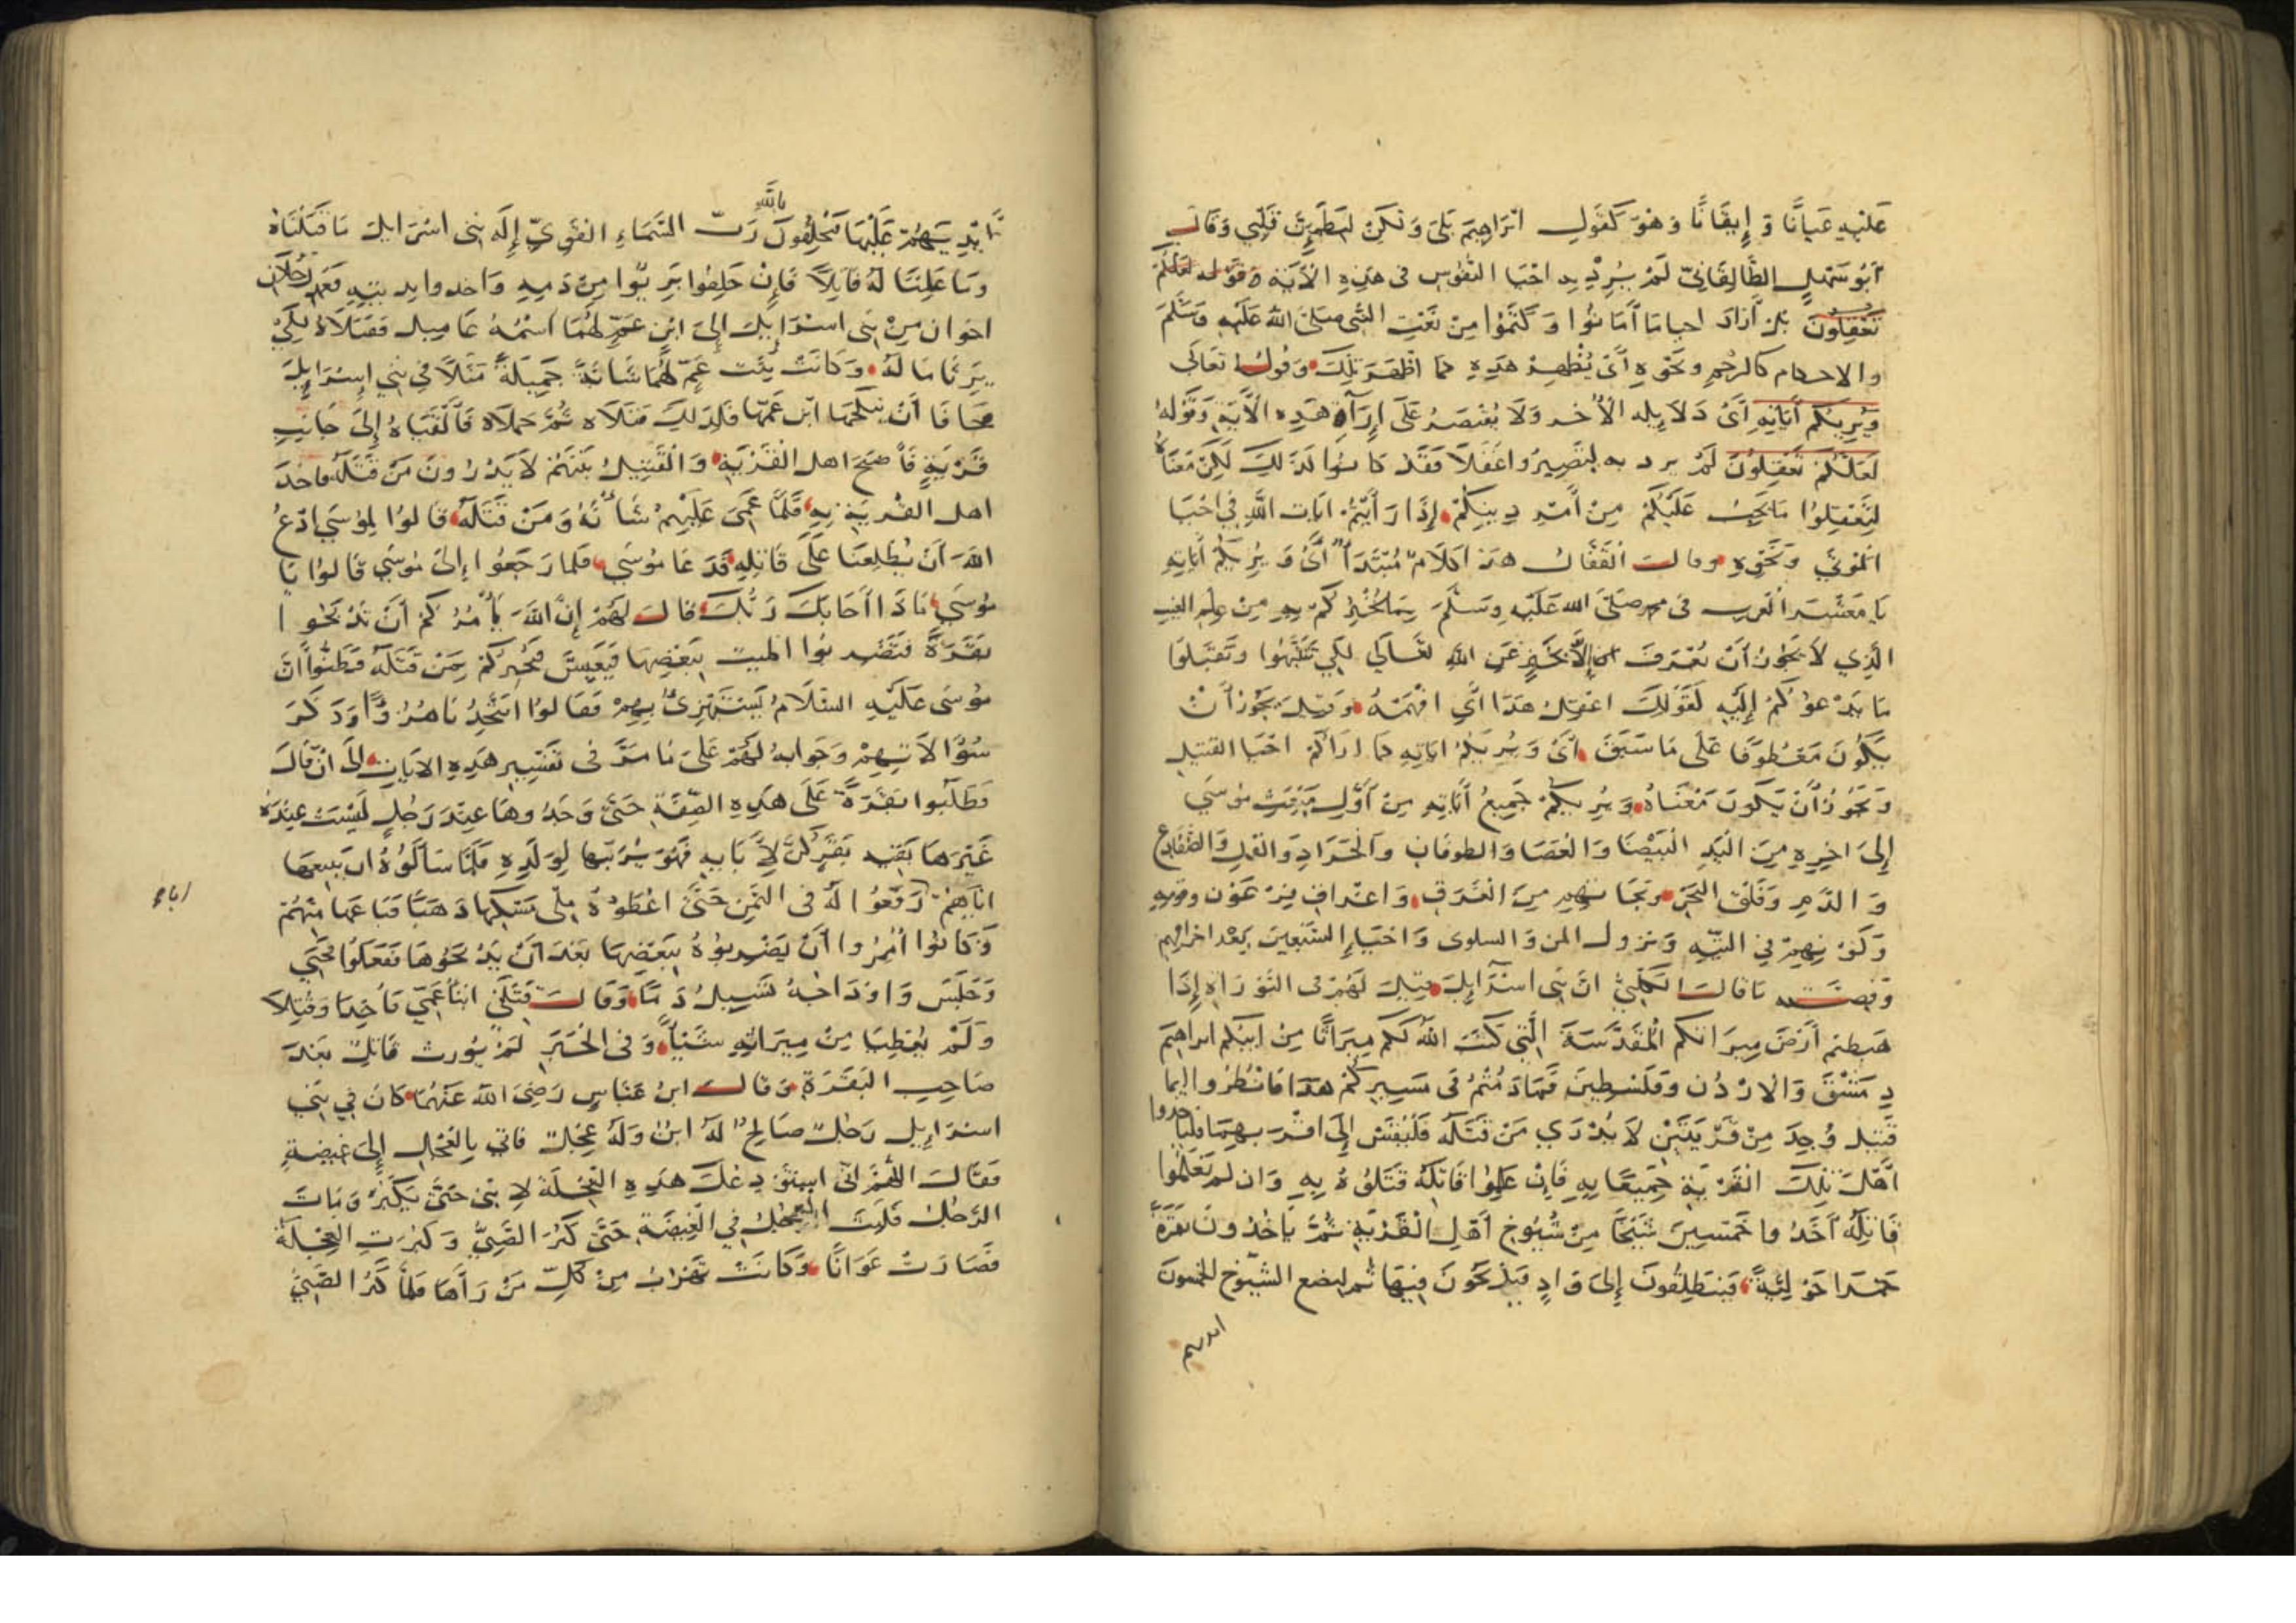 عَلَيْهِ عَيَانًا وَ إِيقَانًا وَهُوَ كَقَولِ ابْرَاهِيمَ بَلَى وَلَكِنْ لِيَطْمَئِنَّ قَلْبِي وَقَالَ
أَبُو سَهْلٍ الطَّالِقَانِيّ لَمْ يُرِدْ بِهِ احْيَا النُّفُوسِ فى هذِهِ الْآيَةِ وقَوْله لَعَلَّكُمْ
تَعْقِلُونَ بَلْ أَرَادَ احيا مَا أَمَاتُوا وَكَتَمُوا مِنْ نَعْتِ النَّبِي صلى اللهُ عَلَيْهِ وَسَلَّمَ
والاحكام كالرجْمِ ونَحْوِهِ أَىْ يُظْهِرُ هَذِهِ كما اظْهَرَ تِلْكَ وَقَولُهُ تَعَالَى
وَيُرِيكُمْ آيَاتِهِ أَىْ دَلَايِله الْأُخَر وَلَا يُقْتَصَرُ عَلَى إِرَآةِ هَذِهِ الْآيَةِ وَقَوْلهُ
لَعَلَّكُمْ تَعْقِلُونَ لَمْ يرد به لِتَصِيرُوا عُقَلَا فَقَدْ كَانُوا كَذَلِكَ لَكِنْ مَعْنَاهُ
لِتَعْقِلُوا مَا يَجِبُ عَلَيْكُمْ مِنْ أَمْرِ دِينِكُمْ إِذَا رَأَيْتُمْ ايَات اللَّهِ فِي احْيَا
الْمَوْتَى وَنَحْوِهِ وقالَ الْقَفَّالُ هذا كَلَامٌ مُبْتَدَأٌ أَىْ وَيُرِيكُمْ آيَاتِهِ
يَا مَعْشَرَ الْعَرَبِ فى محمد صَلَّى الله عَلَيْهِ وَسَلَّمَ بِمَا يُخْبِرُكُمْ بِهِ مِنْ عِلْمِ الغَيبِ
الَّذِي لَا يَجُوزُ أَنْ يُعْرَفَ إِلَّا بِخَبَرٍ عَنِ اللَّهِ تَعَالَى لِكَي تَنْتَبِهُوا وَتَقْبَلُوا
مَا يَدْعُوكُمْ إِلَيْهِ كَقَوْلِكَ اعْقِلْ هَذَا أَيِ افْهَمْهُ وَقِيلَ يَجُوزُ أَنْ
يَكُونَ مَعْطُوفًا عَلَى مَا سَبَقَ أَىْ وَيُرِيكُمْ ايَاتِهِ كَمَا ارَاكُمْ احْيَا القتيلِ
وَيَجُوزُ أَنْ يَكُونَ مَعْنَاهُ وَيُرِيكُمْ جَمِيعُ أَيَاتِهِ مِنْ أَوَّلِ مَبْعَثِ مُوسَي
إِلَى اخِرِهِ مِنَ الْيَدِ الْبَيْضَا وَالْعَصَا وَالطوفَانِ وَالْجَرَادِ وَالقُملِ وَالضَّفَادِعِ
وَ الدَّمِ وَفَلْقِ البَحْرِ ونَجَاتِهِمْ مِنَ الْغَرَقِ وَاعْتِرَافِ فِرْعَوْن وقومِهِ
وَكَوْنِهِمْ فِي التِّيهِ وَنزول المن وَالسلوى وَاحْيَاءِ السَّبْعِينَ بَعْدَ احْرَاقِهِم
وَقِصَّتُه مَا قَالَ الْكَلْبِيُّ انَّ بَنِى اسْرَايِلَ قِيلَ لَهُمْ فى التَّوْرَاةِ إِذَا
هَبطتم أَرْضَ مِيرَاثكم الْمُقَدَّسَةَ الَّتِي كَتَبَ اللهُ لَكُم مِيرَاثًا مِنْ ابيكم ابراهيم
دِمَشْقَ وَالْارْدُن وَفِلَسْطِينَ فَمَا دُمْتُمْ فى مَسِيرِكُمْ هَذَا فَانْظُرُوا ايما
قَتِيل وُجِدَ مِنْ قَرْيَتَيْنِ لَا يُدْرَي مَنْ قَتَلَهُ فَلْيُقَسْ إِلَى اقْرَبِهِمَا فَلْيَاخُذوا
أَهْلَ تِلْكَ الْقَرْيَةِ جَمِيعًا بِهِ فَإِنْ عَلِمُوا قَاتِلَهُ قَتَلُوهُ بِهِ وَان لَمْ يَعْلَمُوا
قَاتِلَهُ أَخَذُوا خَمْسِينَ شَيْخًا مِنْ شُيُوخِ أَهْلِ الْقَرْيَةِ ثُمَّ يَاخُذُونَ بَقَرَةً
حَمْرَا حَوْلِيَّةً فَيَنطَلِقُونَ إِلَىَ وَادٍ فَيَذْبَحُونَ فِيهَا ثُم ليضع الشيُوخُ الخمسون
ايديهم
بالله
أَيْدِيَهُمْ عَلَيْهَا فَيَحْلِفُونَ رَبّ السَّمَاءِ الْقَوِيِّ إِلَهِ بَنِى اسْرَايلَ مَا قَتَلْنَاهُ
وَمَا عَلِمْنَا لَهُ قَاتِلًا فَإِنْ حَلفُوا بَرِئُوا مِنْ دَمِهِ وَاخذوا بديتِهِ فَعَمَدَ رجُلَانِ
اخوان مِنْ بَنِى اسْرَايِلَ إِلَىَ ابْنِ عَمّ لهُمَا اسْمُهُ عَامِيل فَقَتَلَاهُ لِكَيْ
يَرِثَا مَا لَهُ وَكَانَتْ بِنْت عَمّ لَهُمَا شَابَّةً جَمِيلَةً مَثَلًا فِي بَنِي إِسْرَايِلَ
فخَافَا أَنْ يَنْكِحَهَا ابْن عَمّهَا فَلِذَلِكَ قَتَلَاه ثُمَّ حَمَلَاهُ فَأَلْقَيَاهُ إِلَى جَانِبِ
قَرْيَةٍ فَأَصْبَحَ اهل القَرْيَةِ وَالْقَتِيلُ بَيْنَهُمْ لَا يَدْرُونَ مَنْ قَتَلَهُ فاخذ
اهل القَرْيَةِ بِهِ فَلَمَّا عَمِيَ عَلَيْهِمْ شَأْنُهُ وَمَنْ قَتَلَهُ قَالوُا لِمُوسَي ادْعُ
اللهَ أَنْ يُطْلِعَنَا عَلَى قَاتِلِهِ فَدَعَا مُوسَي فلما رَجَعُوا إِلىَ مُوسَي قَالُوا يَا
مُوسَي مَاذَا أَجَابَكَ رَبُّكَ قالَ لَهُمْ إِنَّ اللهَ يَأْمُرُكُمْ أَنْ تَذْبَحُوا
بَقَرَةً فَتَضْرِبُوا الميت بِبَعْضِهَا فَيَعِيشَ فَيُخْبِركُمْ مَنْ قَتَلَهُ فَظَنُّوا انَّ
مُوسَى عَلَيْهِ السَّلَامُ يَسْتَهْزِئُ بِهِمْ فَقَالوُا اتَتَّخِذُنَا هُزُوًا وَذَكَرَ
سُؤَالَاتِهِمْ وَجَوابهُ لَهُمْ عَلَى مَا مَرَّ فى تَفْسِيرِ هَذِهِ الايَاتِ إلَى انْ قَالَ
فَطَلَبُوا بَقَرَةً عَلَى هَذِهِ الصِّفَةِ حَتَّى وَجَدُوهَا عِنْدَ رَجُلٍ لَيْسَتْ عِنْدَهُ
غَيْرهَا بَقِيَّة بَقَرٍ كُنَّ لِأَبَايِهِ فَهُوَ يُرَبّيها لِوَلَدِهِ فَلَمَّا سَأَلُوهُ ان يبيعهَا
اباء
ايَّاهِمْ رَفَعُوا لَهُ فى الثَّمَنِ حَتَّى اعْطَوْهُ مِلْى مَسْكِهَا ذَهَبًا فَبَاعَهَا مِنْهُمْ
وَكَانُوا أُمِرُوا أَنْ يَضْرِبُوهُ بِبَعْضِهَا بَعْدَ أَنْ يَذْبَحُوهَا فَفَعَلُوا فَحَيِيَ
وَجَلَسَ وَاوْدَاجُهُ تَسِيلُ دَمًا وَقَالَ قَتَلَنِى ابْنَا عَمِّي فَأُخِذَا وَقُتِلَا
وَلَمْ يُعْطَيَا مِنْ مِيرَاثِهِ شَيْئًا وَفى الخَبَرِ لَمْ يُورث قَاتِلٌ بَعْدَ
صَاحِبِ البَقَرَةِ وَقَالَ ابنُ عَبَّاسٍ رَضِىَ اللهُ عَنْهُمَا كَانَ فِي بَنِي
اسْرَايِيل رَجُلٌ صَالِحٌ لَهُ ابْنٌ وَلَهُ عِجْلَةٌ فَاتَى بِالْعِجْلِ إِلَى غَيْضَةٍ
فَقَالَ اللَّهُمَّ انّي اسْتَوْدِعُكَ هَذِهِ الْعِجْلَةَ لِابْنِى حَتَّى يَكْبَرُ وَمَاتَ
الرَّجُلُ فَلَبِثَ العِجْلُ فِي الْغَيْضَةِ حَتَّى كَبُرَ الصَّبِيُّ وَكَبُرَتِ العِجْلَةُ
فَصَارَتْ عَوَانًا وَكَانَتْ تَهْرُبُ مِنْ كلّ مَنْ رَآهَا فَلَمَّا كَبُرَ الصَّبِيُّ